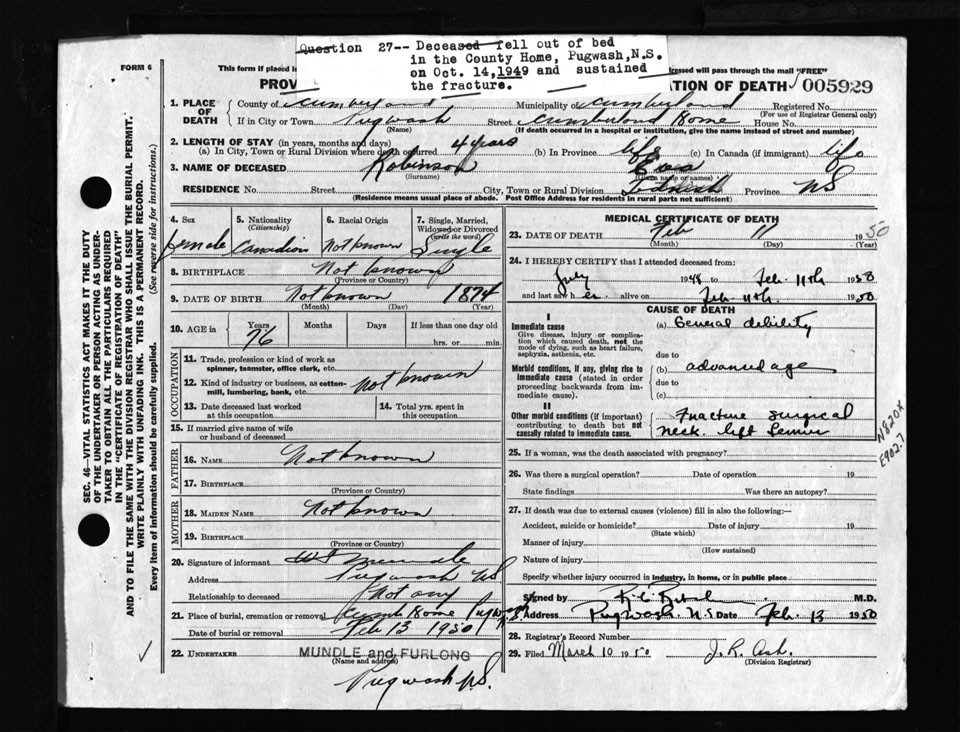 Question 27-- Deceased fell out of bed
in the County Home, Pugwash,N.S.
on Oct. 14,1949 and sustained
the fracture.
FORM 6
This form if placed in
dressed will pass through the mail "FREE"
PROV
ATION OF DEATH
005929
1. PLACE OF DEATH
County of Cumberland Municipality of Cumberland Registered No.
(For use of Registrar General only)
If in City or Town Pugwash Street Cumberland Home House No.
(Name) (If death occurred in a hospital or institution, give the name instead of street and number)
2. LENGTH OF STAY (in years, months and days)
(a) In City, Town or Rural Division where death occurred 4 years (b) In Province life (c) In Canada (if immigrant) life
3. NAME OF DECEASED Robinson
(Surname) names)
RESIDENCE No. Street City, Town or Rural Division Province NS
(Residence means usual place of abode. Post Office Address for residents in rural parts not sufficient)
4. Sex Female
5. Nationality (Citizenship) Canadian
6. Racial Origin Not known
7. Single, Married, Widowed or Divorced (write the word) Single
8. BIRTHPLACE Not known
(Province or Country)
9. DATE OF BIRTH Not known 1874
(Month) (Day) (Year)
10. AGE in Years Months Days If less than one day old
76 hrs. or min.
OCCUPATION
11. Trade, profession or kind of work as
spinner, teamster, office clerk, etc.
12. Kind of industry or business, as cotten-
mill, lumbering, bank, etc. Not known
13. Date deceased last worked
at this occupation
14. Total yrs. spent in
this occupation
15. If married give name of wife
or husband of deceased
FATHER
16. NAME Not known
17. BIRTHPLACE
(Province or Country)
MOTHER
18. MAIDEN NAME Not known
19. BIRTHPLACE
(Province or Country)
20. Signature of informant Mundle
Address Pugwash NS
Relationship to deceased Not any
21. Place of burial, cremation or removal Cumb Home Pugwash N.S.
Date of burial or removal Feb 13 1950
22. UNDERTAKER MUNDLE and FURLONG
(Name and address)
Pugwash N.S.
MEDICAL CERTIFICATE OF DEATH
23. DATE OF DEATH Feb 11 1950
(Month) (Day) (Year)
24. I HEREBY CERTIFY that I attended deceased from:
July 1948 to Feb. 11th 1950
and last saw her alive on Feb. 11th. 1950
CAUSE OF DEATH
I
Immediate cause
Give disease, injury or complica-
tion which caused death, not the
mode of dying, such as heart failure,
asphyxia, asthenia, etc.
(a) General debility
due to
Morbid conditions, if any, giving rise to
immediate cause (stated in order
proceeding backwards from im-
mediate cause).
(b) advanced age
due to
(c)
II
Other morbid conditions (if important)
contributing to death but not
causally related to immediate cause.
Fracture surgical
neck. left femur
N820X
E902.7
25. If a woman, was the death associated with pregnancy?
26. Was there a surgical operation? Date of operation 19
State findings Was there an autopsy?
27. If death was due to external causes (violence) fill in also the following:—
Accident, suicide or homicide? Date of injury 19
(State which)
Manner of injury
(How sustained)
Nature of injury
Specify whether injury occurred in industry, in home, or in public place
Signed by M.D.
Address Pugwash. N.S Date Feb. 13 1950
28. Registrar's Record Number
29. Filed March 10 1950 J. R. Ash.
(Division Registrar)
SEC. 46—VITAL STATISTICS ACT MAKES IT THE DUTY
OF THE UNDERTAKER OR PERSON ACTING AS UNDER-
TAKER TO OBTAIN ALL THE PARTICULARS REQUIRED
IN THE "CERTIFICATE OF REGISTRATION OF DEATH"
AND TO FILE THE SAME WITH THE DIVISION REGISTRAR WHO SHALL ISSUE THE BURIAL PERMIT.
WRITE PLAINLY WITH UNFADING INK. THIS IS A PERMANENT RECORD.
Every item of information should be carefully supplied. (See reverse side for instructions.)